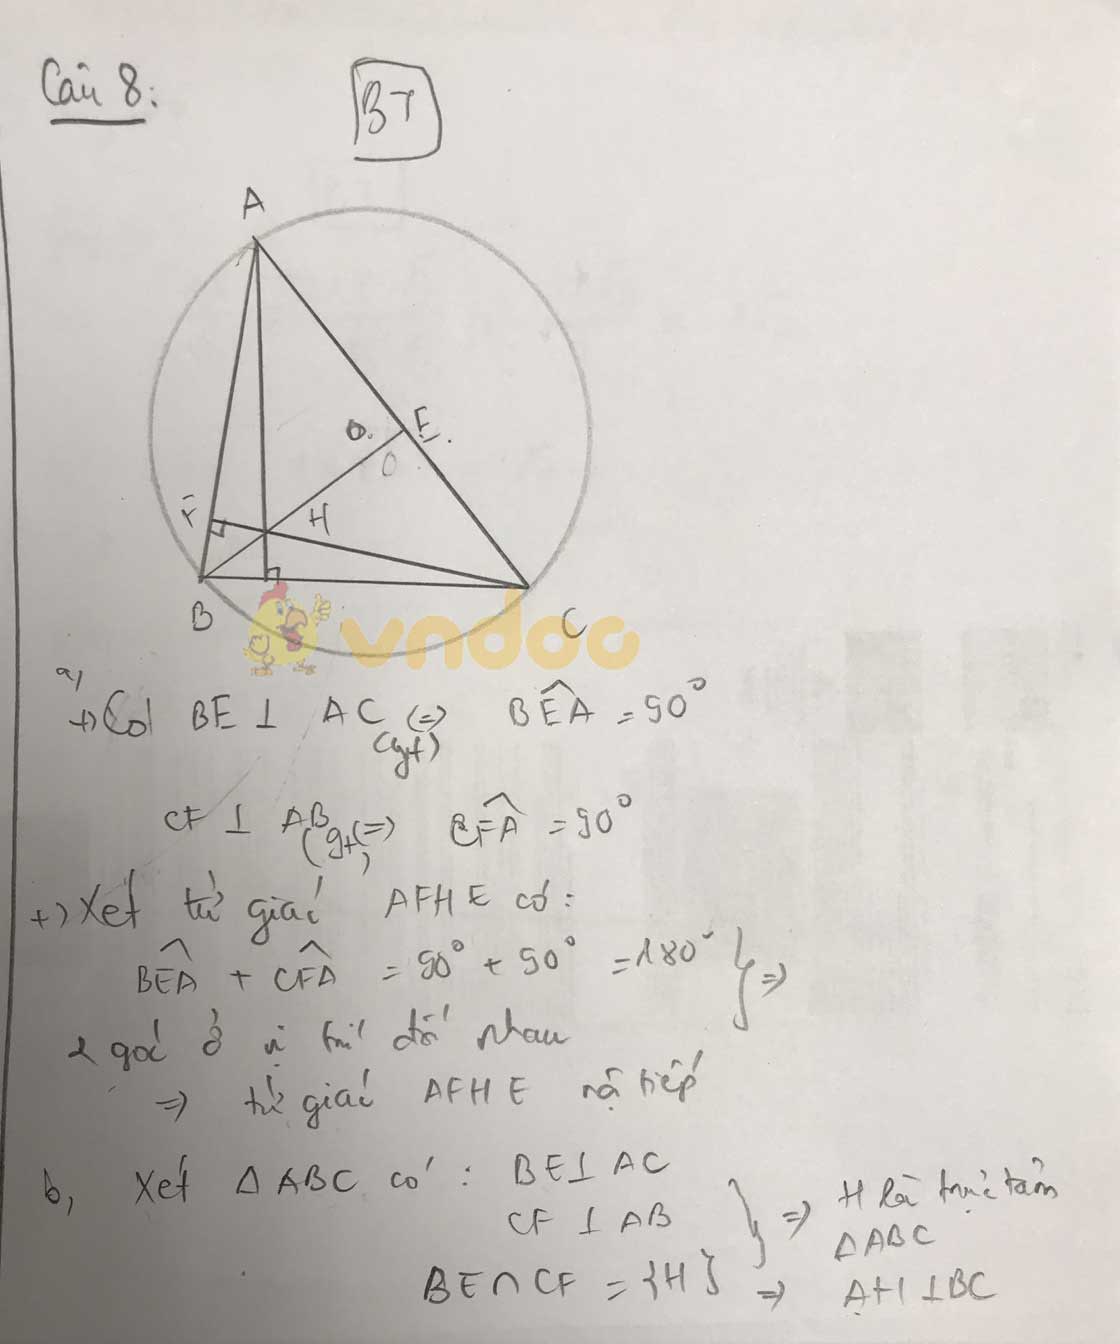 Câu 8:
B7
A
O.
E.
O
F
H
B
C
vndoc
a,
+) Có BE ⊥ AC (gt) (=) BÊA = 90°
CF ⊥ AB (gt) (=) CFA = 90°
+) Xét tứ giác AFHE có:
BEA + CFA = 90° + 90° = 180° } =>
2 góc ở vị trí đối nhau
=> tứ giác AFHE nội tiếp
b, Xét Δ ABC có: BE ⊥ AC
CF ⊥ AB } => H là trực tâm
ΔABC
BE ∩ CF = {H} => AH ⊥ BC